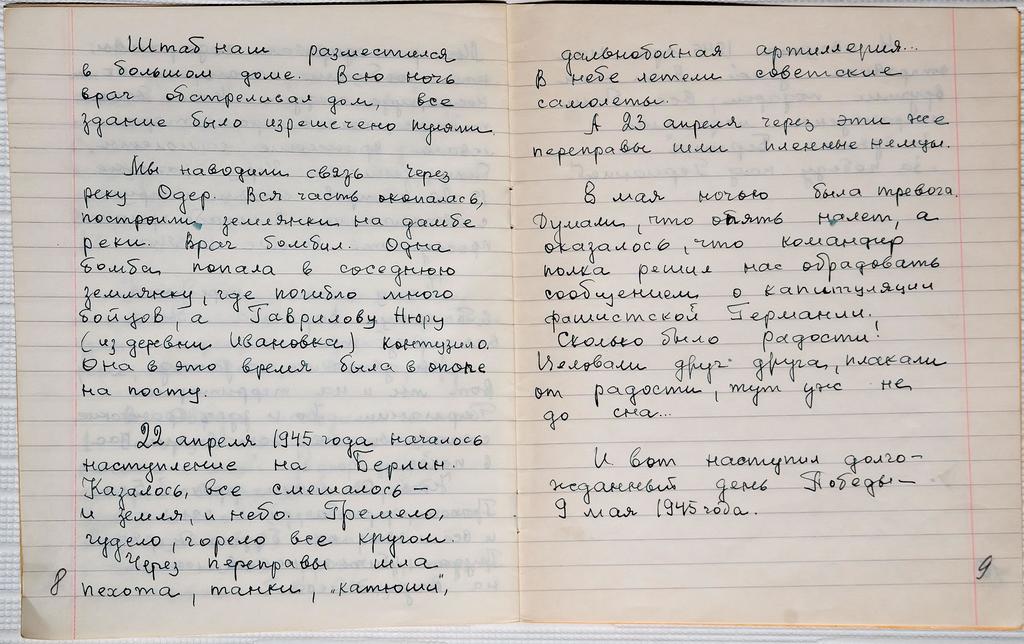 Штаб наш разместился
в большом доме. Всю ночь
враг обстреливал дом, все
здание было изрешечено пулями.
Мы наводили связь через
реку Одер. Вся часть окопалась,
построили землянки на дамбе
реки. Враг бомбил. Одна
бомба попала в соседнюю
землянку, где погибло много
бойцов, а Гаврилову Нюру
(из деревни Ивановка) контузило.
Она в это время была в окопе
на посту.
22 апреля 1945 года началось
наступление на Берлин.
Казалось, все смешалось –
и земля, и небо. Гремело,
гудело, горело все кругом.
Через переправы шла
пехота, танки, "катюши",
8
дальнобойная артиллерия...
В небе летели советские
самолеты.
А 23 апреля через эти же
переправы шли пленные немцы.
В мая ночью была тревога.
Думали, что опять налет, а
оказалось, что командир
полка решил нас обрадовать
сообщением о капитуляции
фашистской Германии.
Сколько было радости!
Целовали друг друга, плакали
от радости, тут уж не
до сна...
И вот наступил долго-
жданный день Победы –
9 мая 1945 года.
9